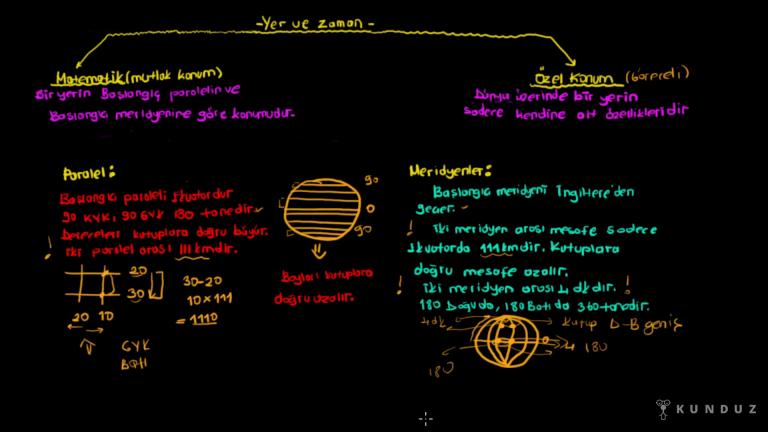 -Yer ve zaman-
Matematik (mutlak konum)
Bir yerin Başlangıç paralelin ve
Başlangıç meridyenine göre konumudur.
Özel Konum (Göreceli)
Dünya üzerinde bir yerin
sadece kendine ait özellikleridir
Paralel:
Başlangıç paraleli Ekvatordur
90 KYK, 90 GYK 180 tanedir.
Dereceleri kutuplara doğru büyür.
! iki paralel arası 111 kmdir.
20
30
20 10
30-20
10x111
=1110
GYK
Batı
90
0
90
Boyları kutuplara
doğru azalır.
Meridyenler:
Başlangıç meridyeni İngiltere'den
geçer.
! iki meridyen arası mesafe sadece
Ekvatorda 111 kmdir. Kutuplara
doğru mesafe azalır.
! iki meridyen arası 4 dkdır. !
180 Doğuda, 180 Batıda 360 tanedir.
4dk
Kutup D-B geniş
180
180
KUNDUZ